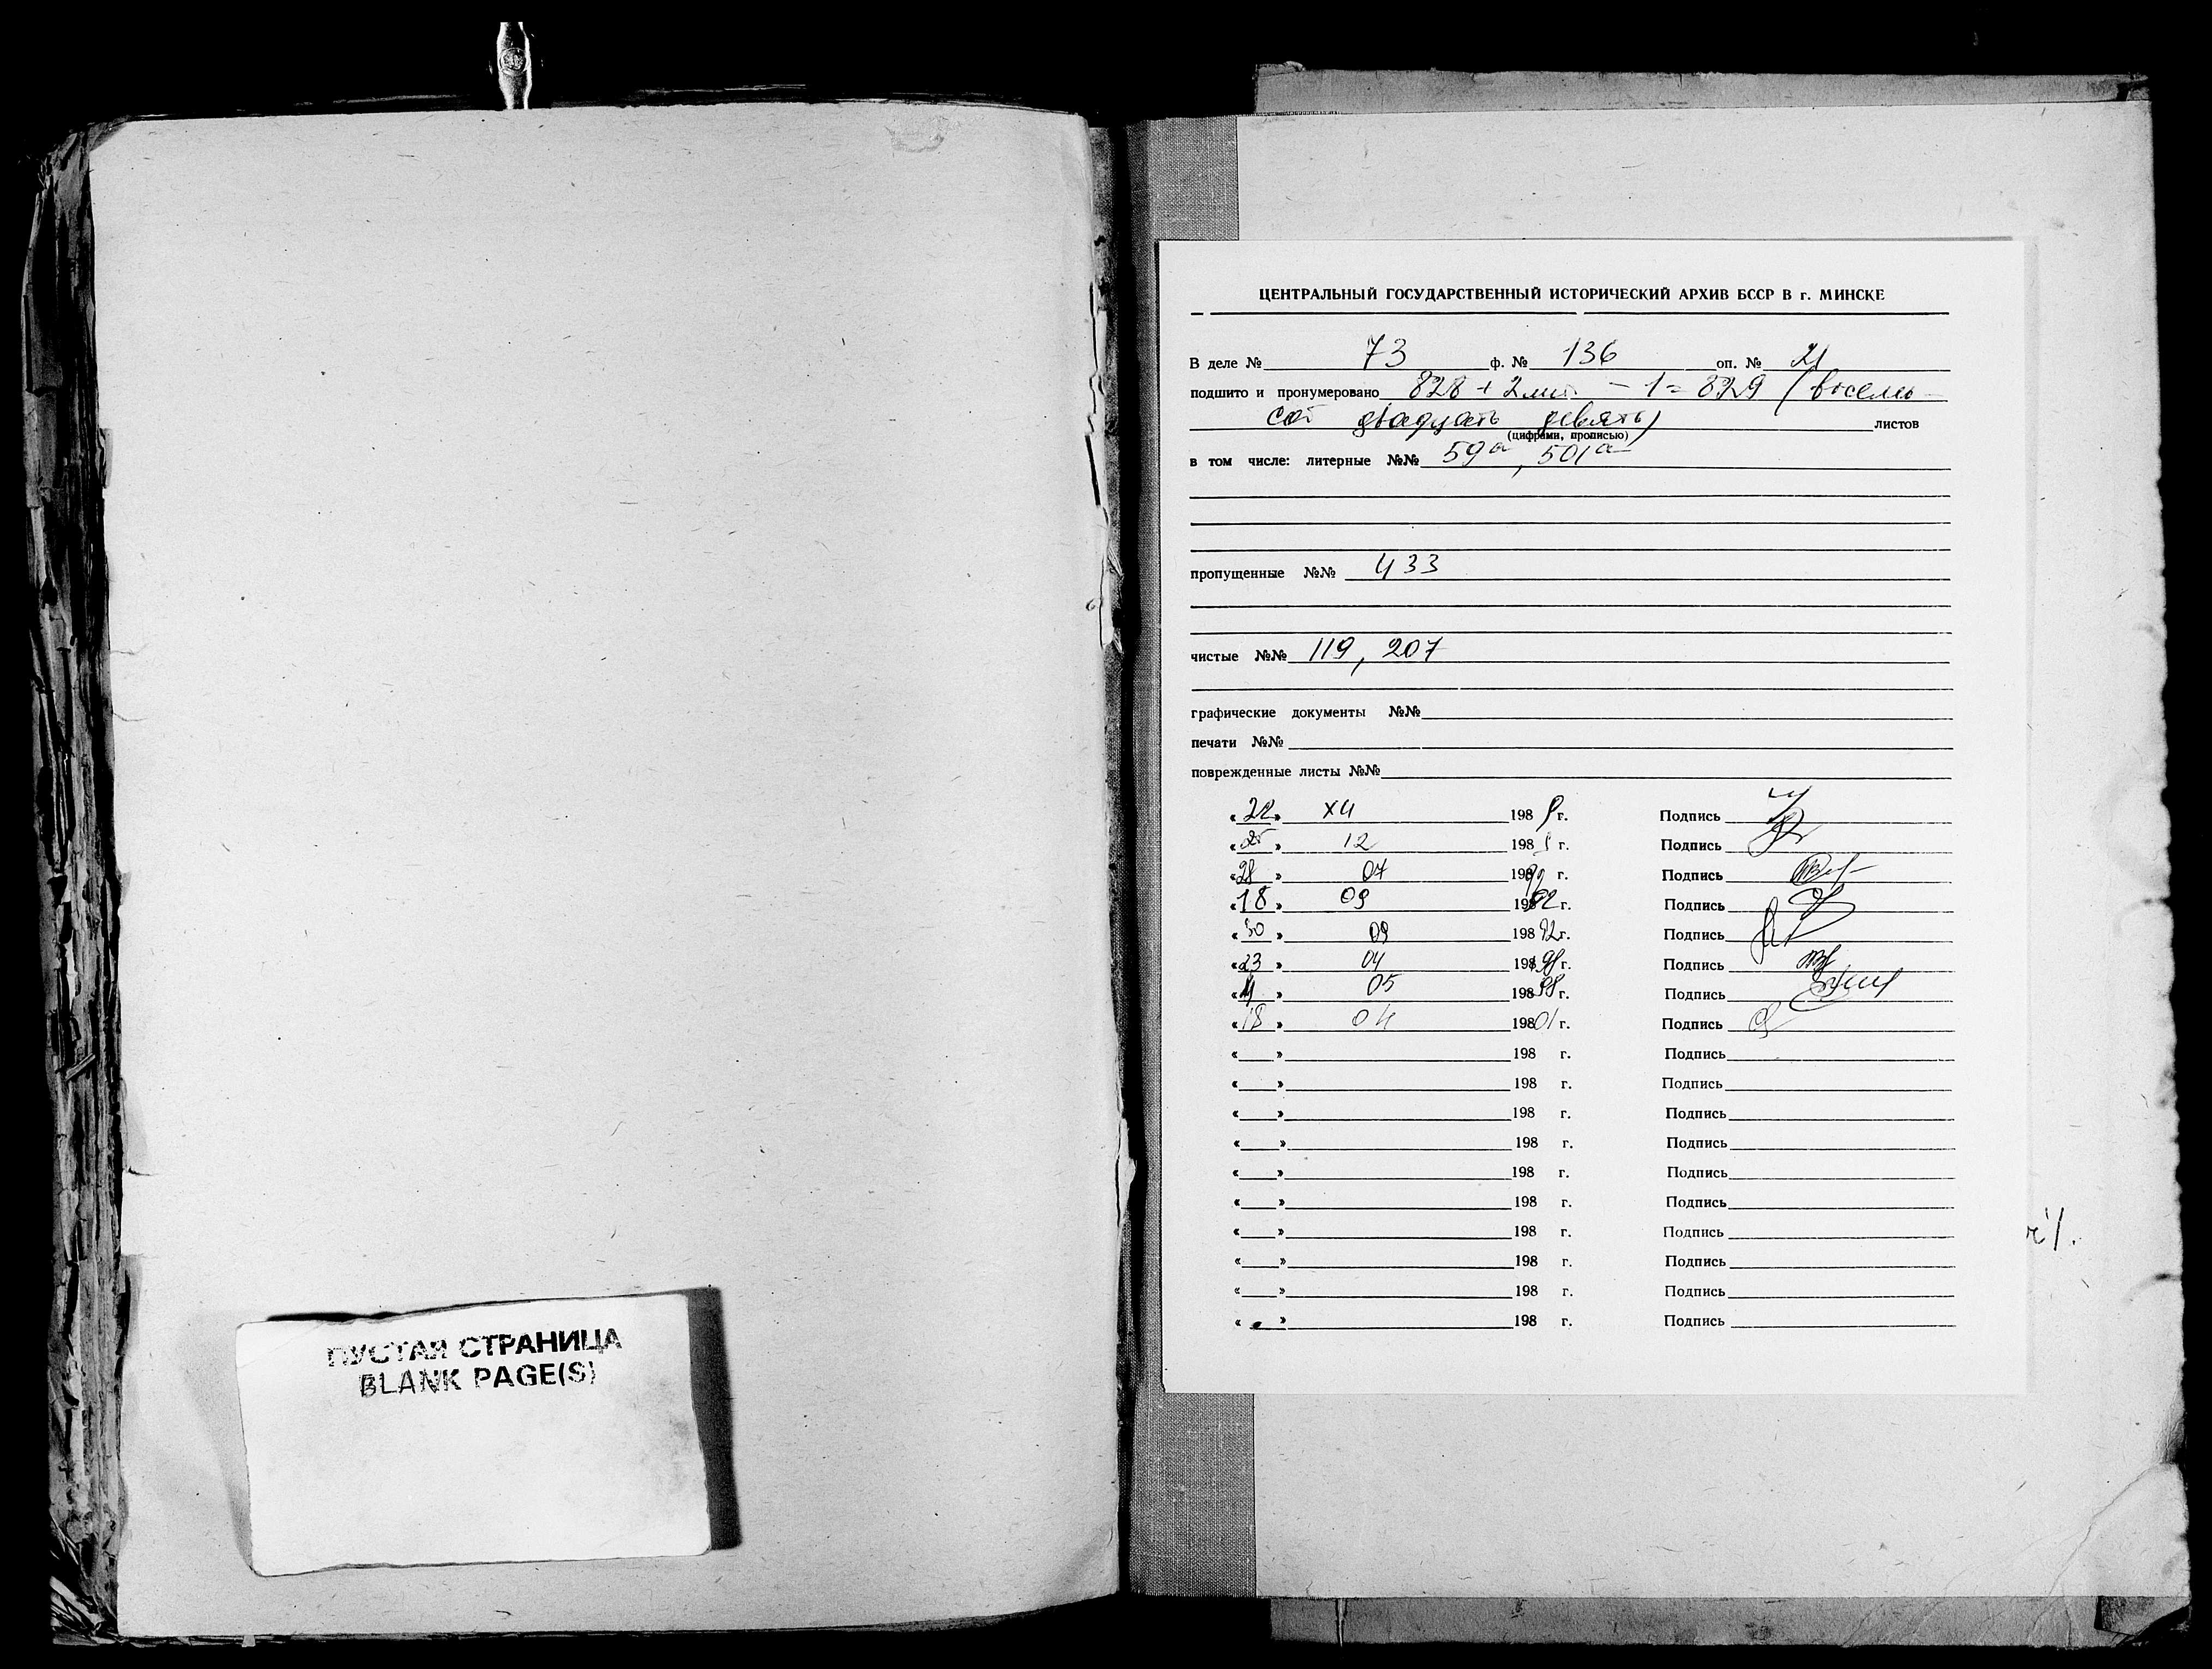 ПУСТАЯ СТРАНИЦА
BLANK PAGE(S)
ЦЕНТРАЛЬНЫЙ ГОСУДАРСТВЕННЫЙ ИСТОРИЧЕСКИЙ АРХИВ БССР В г. МИНСКЕ
В деле № 73 ф. № 136 оп. № 21
подшито и пронумеровано 828 + 2 лит. - 1 = 829 (восемь-
сот двадцать девять) листов
(цифрами, прописью)
в том числе: литерные №№ 59а, 501а
пропущенные №№ 433
чистые №№ 119, 207
графические документы №№
печати №№
поврежденные листы №№
«22» 198 г. Подпись
«25» 12 198 г. Подпись
«28» 07 198 г. Подпись
«18» 09 198 92 г. Подпись
«30» 09 198 92 г. Подпись
«23» 04 198 г. Подпись
« » 05 198 98 г. Подпись
«18» 04 198 01 г. Подпись
« » 198 г. Подпись
« » 198 г. Подпись
« » 198 г. Подпись
« » 198 г. Подпись
« » 198 г. Подпись
« » 198 г. Подпись
« » 198 г. Подпись
« » 198 г. Подпись
« » 198 г. Подпись
« » 198 г. Подпись